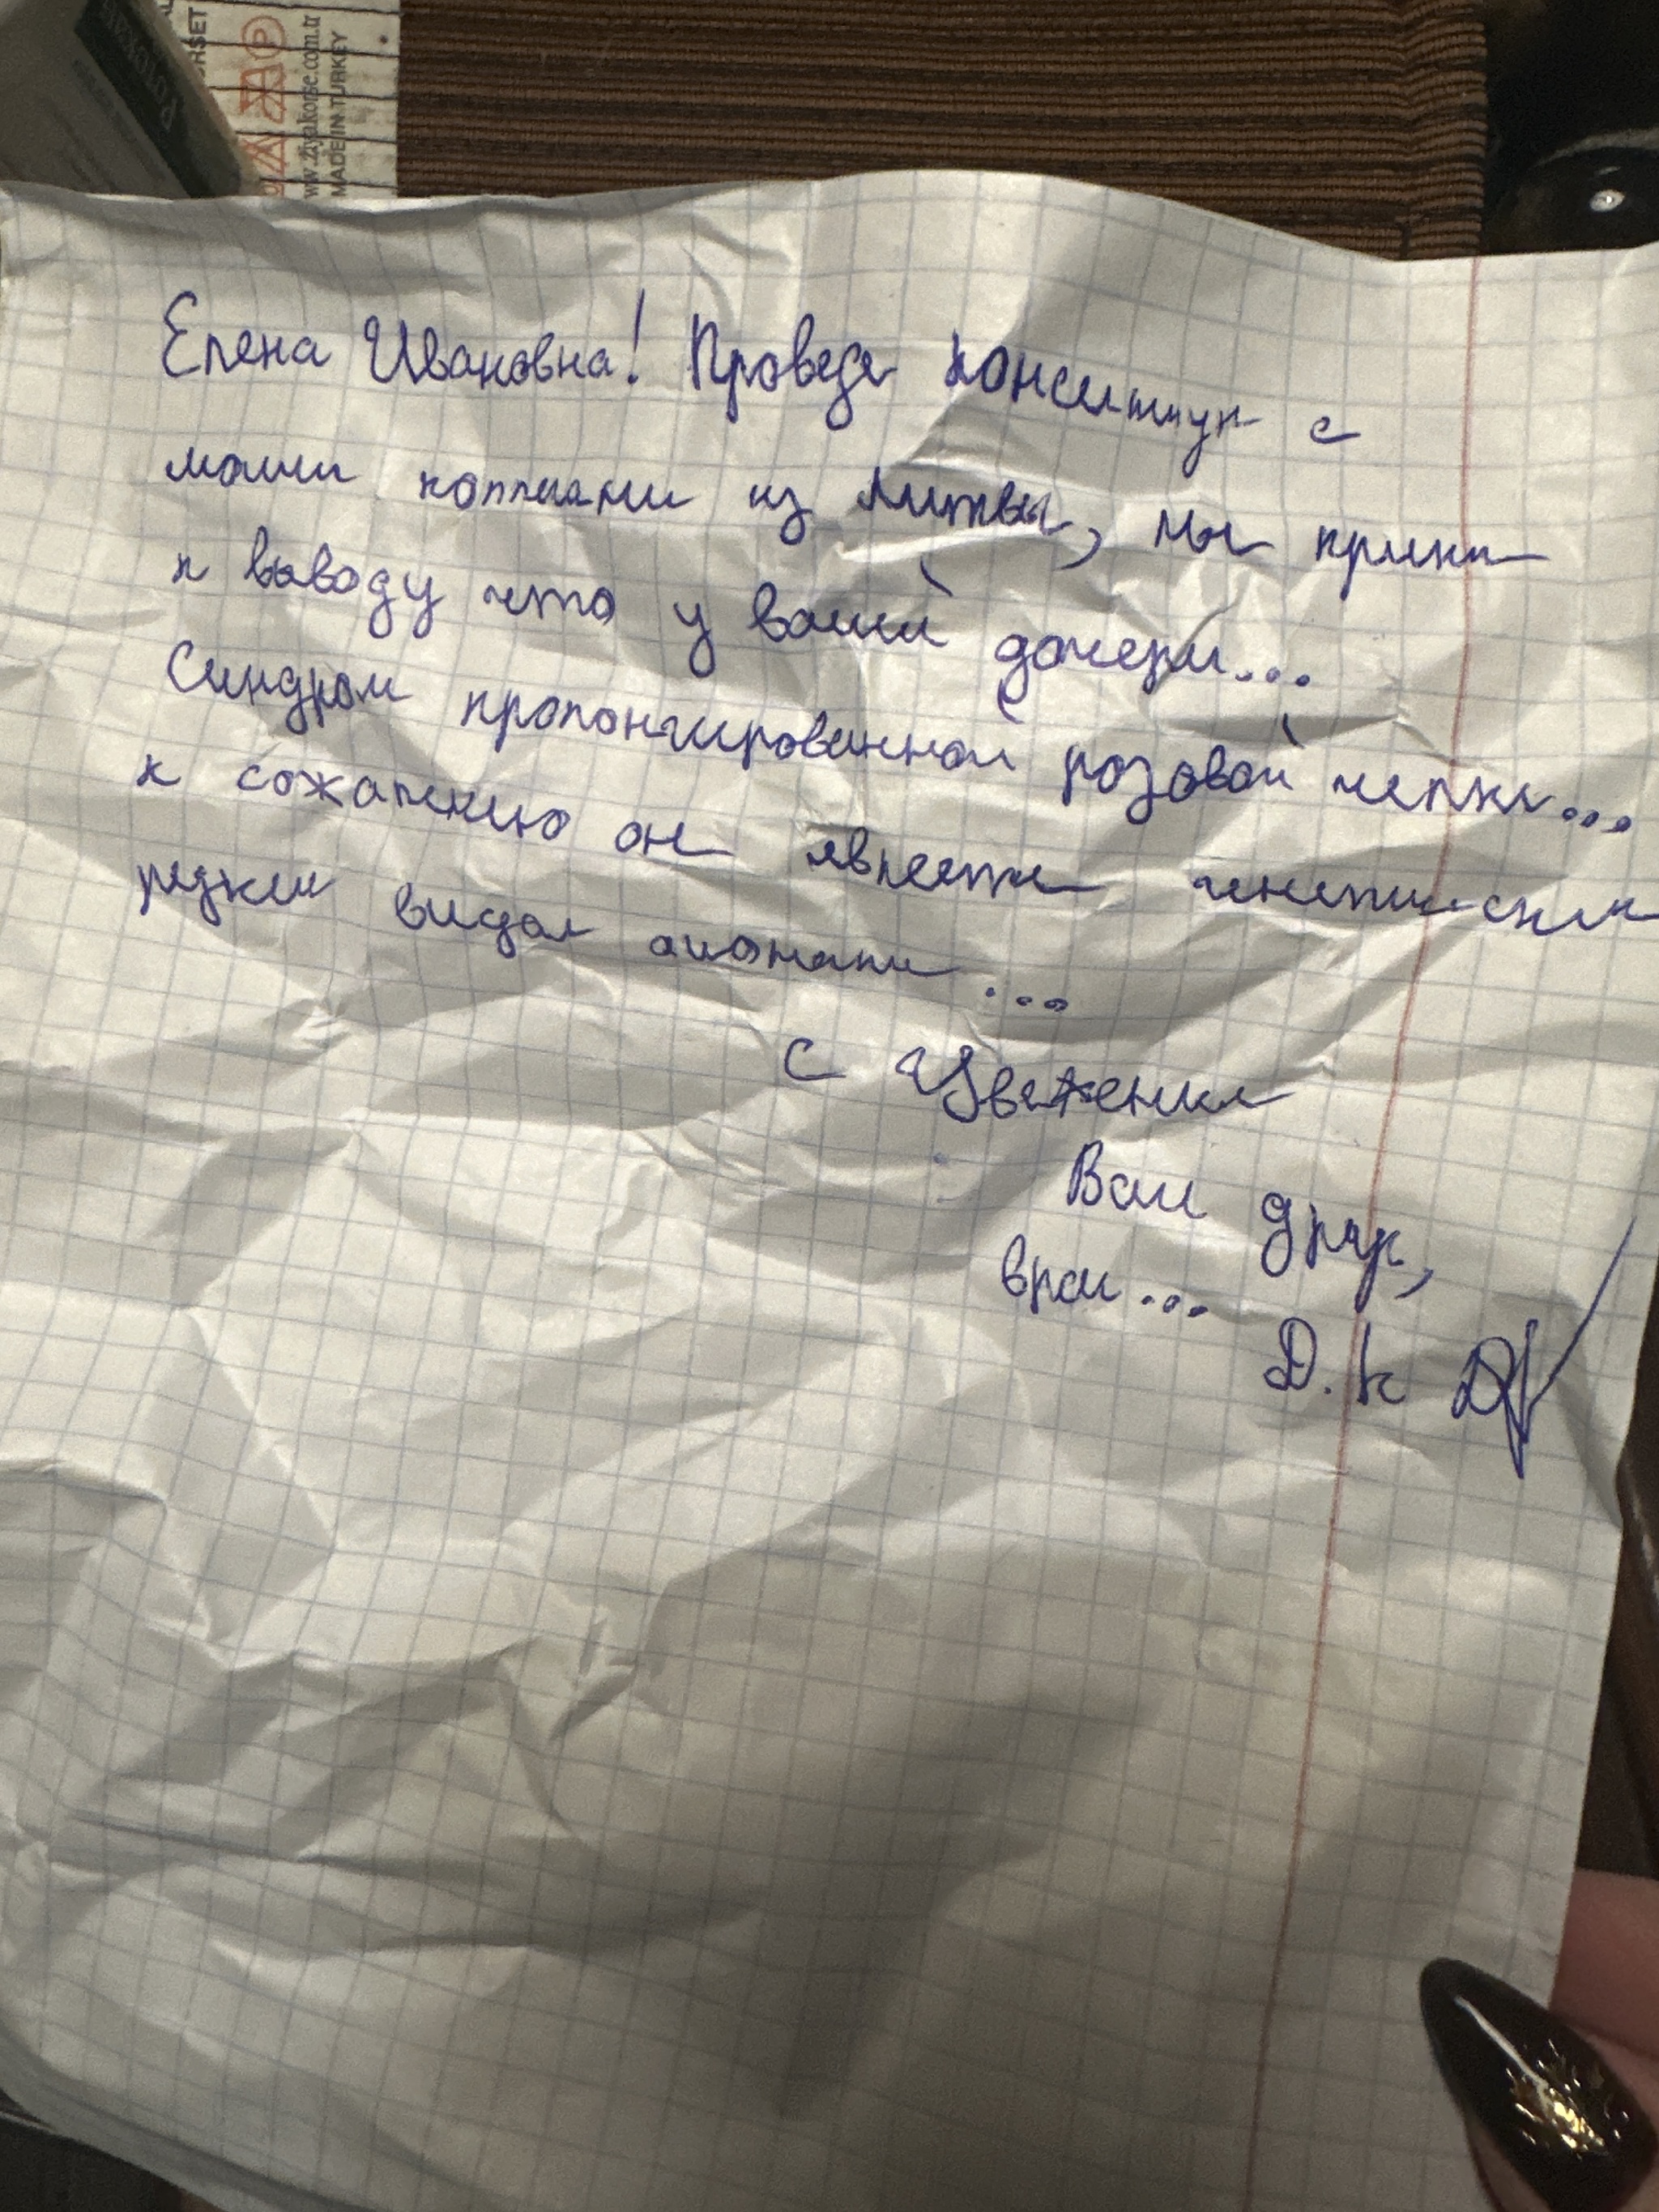 RSET
www.ziyakorse.com.tr
MADE IN TURKEY
P
Елена Ивановна! Проведя консилиум с
моими коллегами из Литвы, мы пришли
к выводу что у вашей дочери...
Синдром пролонгированной розовой челки...
к сожалению он является генетическим
редким видом
с Уважением
Ваш друг,
врач...
Д.К